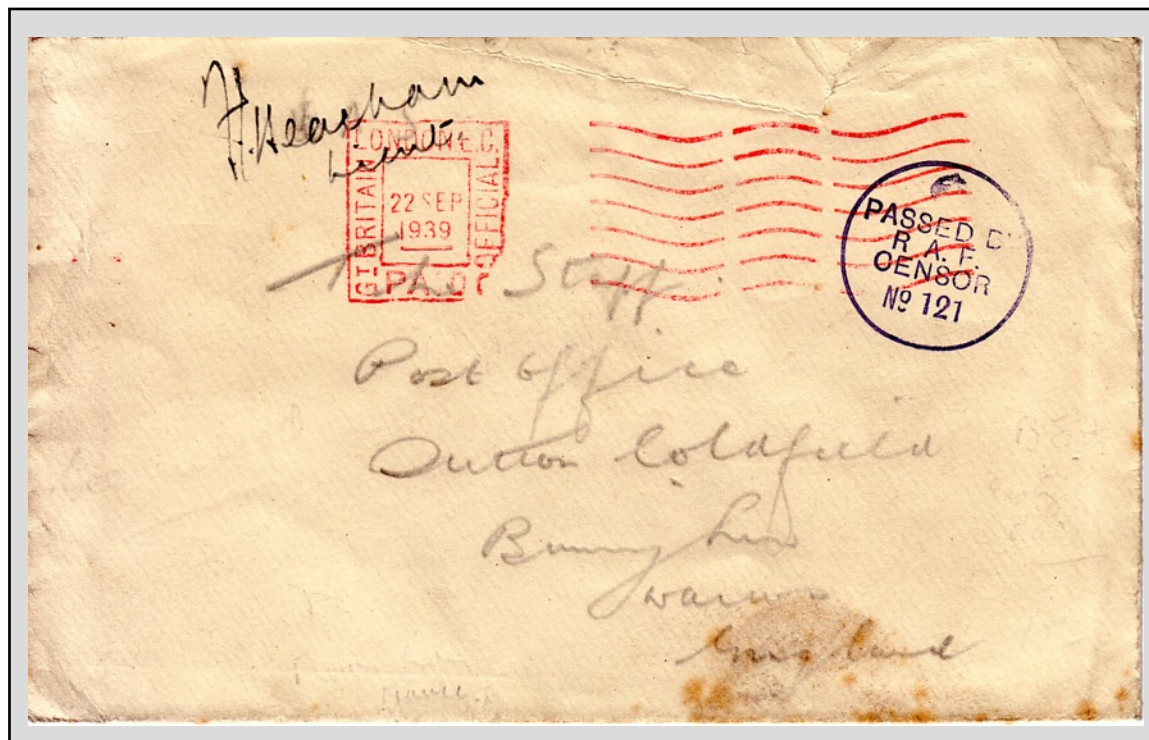 H. Heacham
Lieut.
LONDON E.C.
GT BRITAIN
22 SEP
1939
OFFICIAL
PAID
PASSED B
R. A. F.
CENSOR
No 121
The Staff
Post Office
Sutton Coldfield
England
France